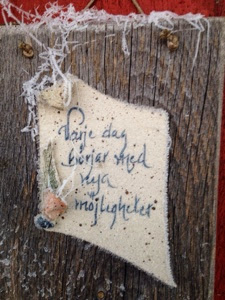 Varje dag
börjar med
nya
möjligheter